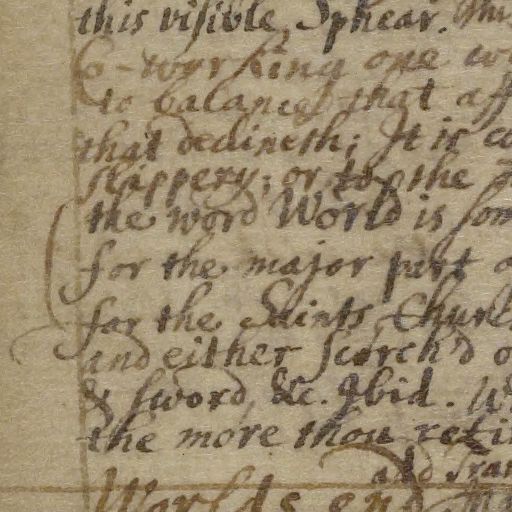 this visible, Sphear. This
Co-working one wi
to balance that aff
that declineth; It is co
slappery; or to the
the word World is som
for the major part o
for the Saints, Church
and either scorch'd o
& sword, &c. Ibid. W
the more thou retir
add
Worlds end